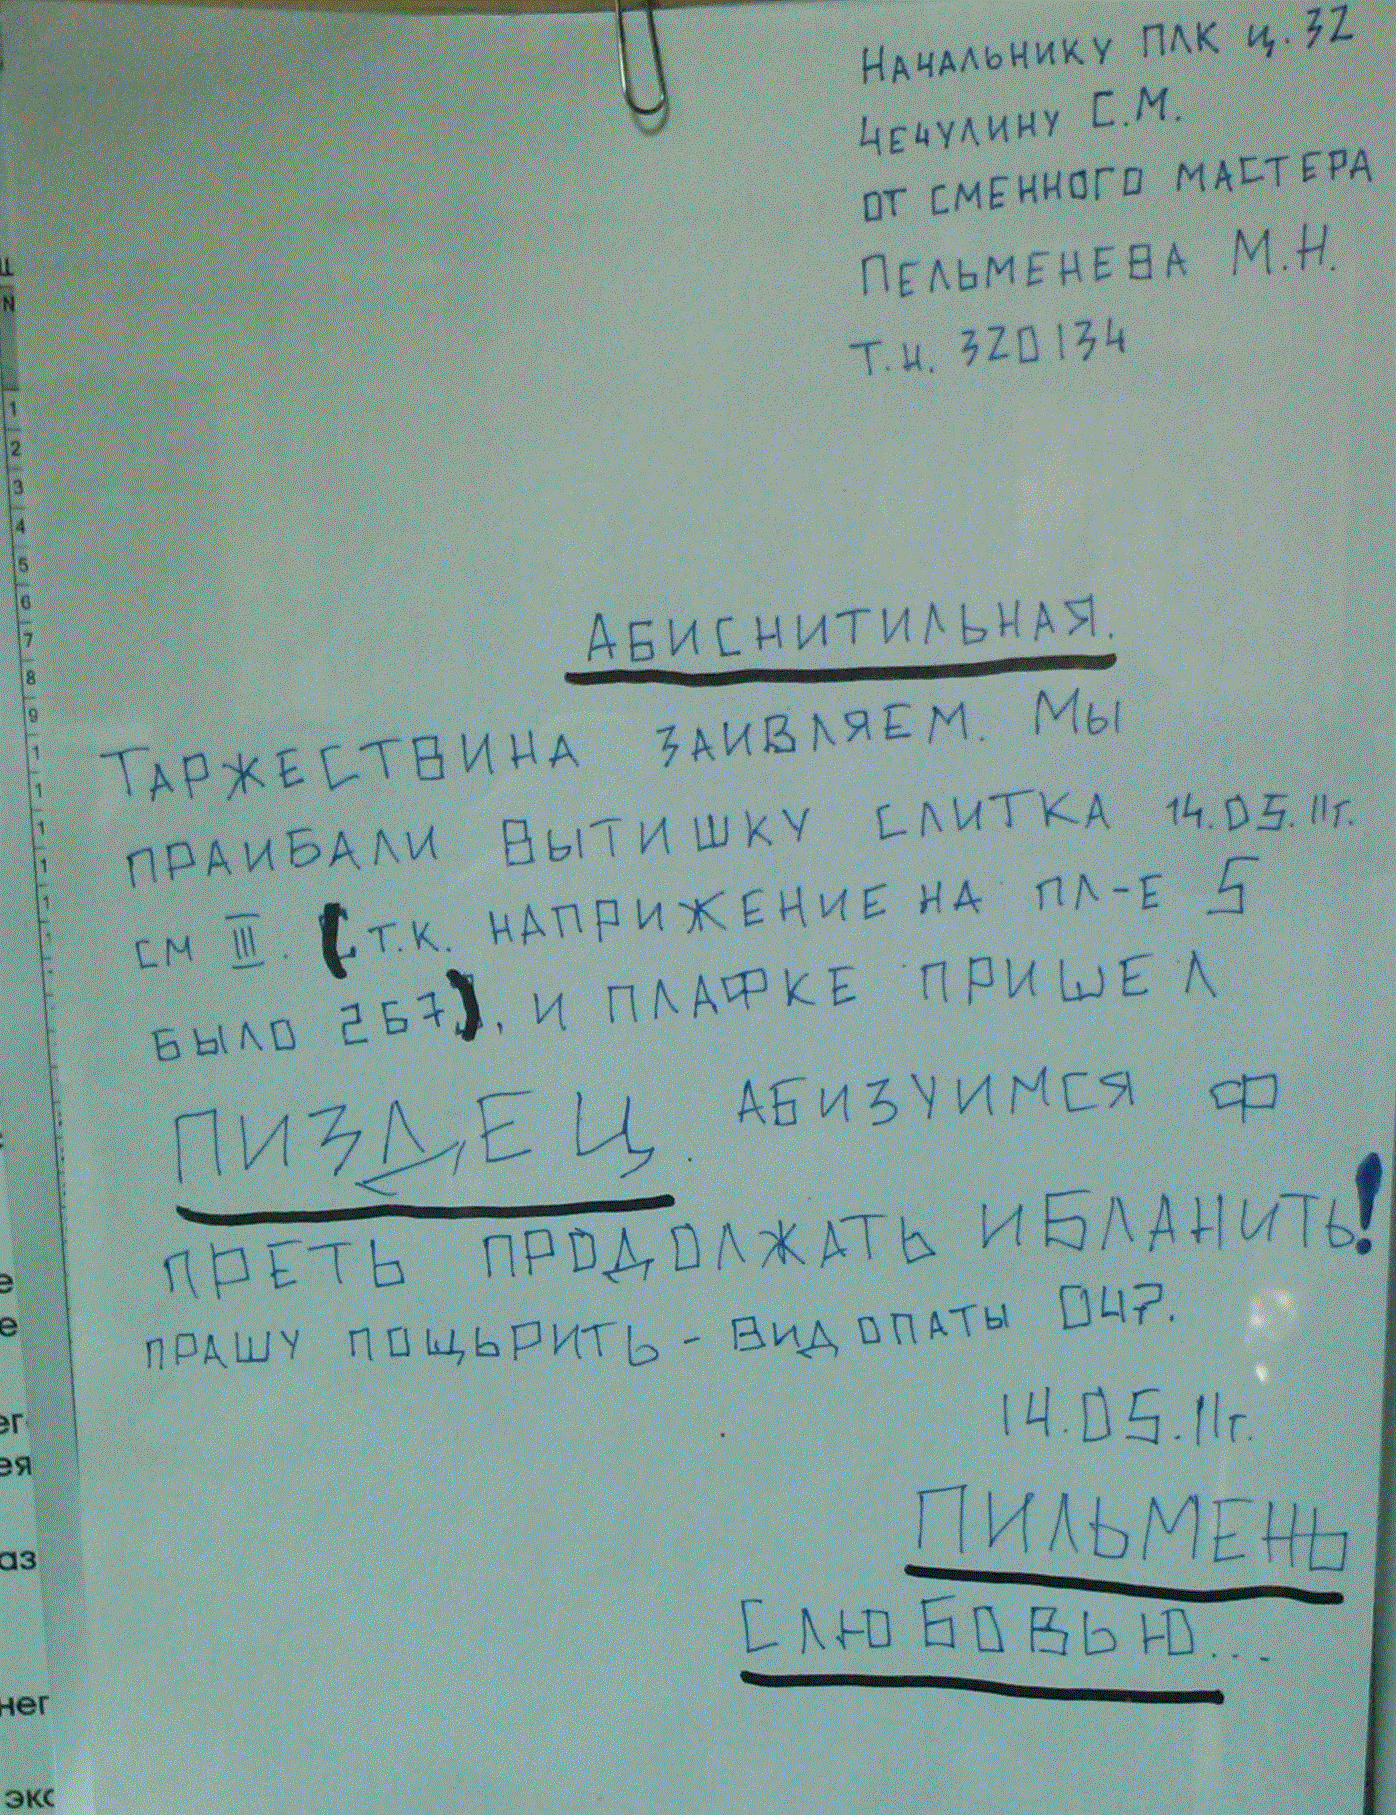 Начальнику ПЛК ц. 32
Чечулину С.М.
от сменного мастера
Пельменева М.Н.
Т.н. 320134
Абиснитильная.
Таржествина заивляем. Мы
праибали вытишку слитка 14.05.11г.
см III. (т.к. наприжение на пл-е 5
было 267), и плафке пришел
пиздец. абизуимся ф
преть продолжать ибланить!
прашу пощьрить - вид опаты 047.
14.05.11г.
Пильмень
С любовью...
ш
N
1
2
3
4
5
6
7
8
9
1
1
1
1
е
е
ег
ея
аз
нег
экс